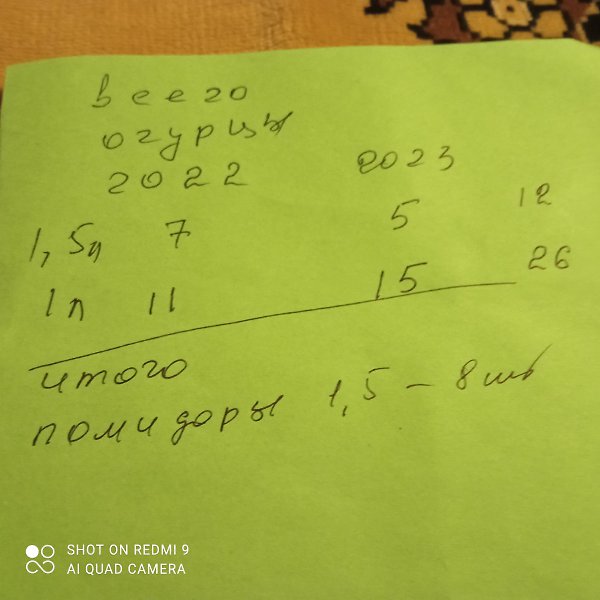 всего
огурцы
2022 2023
1,5л 7 5 12
1л 11 15 26
итого
помидоры 1,5 - 8шт
SHOT ON REDMI 9
AI QUAD CAMERA